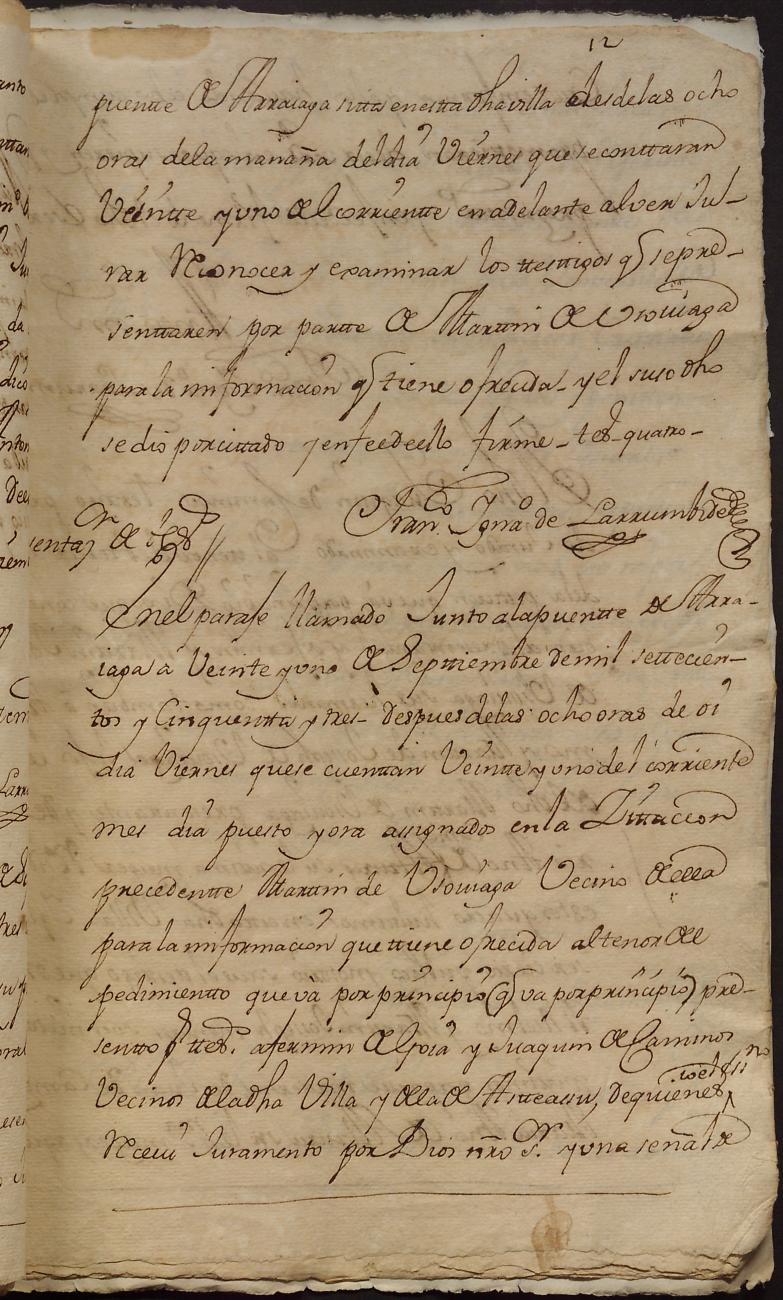 12
puentte de Arraiaga sitta enestta dha villa desdelas ocho
oras dela mañana deldia Viernes que se conttaran
Veintte y uno del corrientte en adelante alver Ju-
rar Reconocer y examinar los ttesttigos q se pre-
senttaren por partte de Marttin de Usoviaga
para la informacion q tiene ofrecida y el suso dho
se dio por cittado y enfeedeello firme - tes - quatro -
Franco Ignao de Larrumbide
En el paraje llamado Junto ala puentte de Arra-
iaga a Veinte y uno de Septtiembre de mil settecien-
tos y Cinquentta y tres despues delas ocho oras de oi
dia Viernes que se cuenttan Veintte y uno del corriente
mes dia puesto y ora assignados en la Zittacion
precedentte Marttin de Usoviaga Vecino de ella
para la informacion que ttiene ofrecida al tenor del
pedimientto que va por principio (q va por principio) pre-
sentto p ttes. a fermin de Loia y Juaquin de Caminos
Vecinos de la dha Villa y de la de Astteassu, de quienes
Recevi Juramento por Dios nro Sr. y una señal de